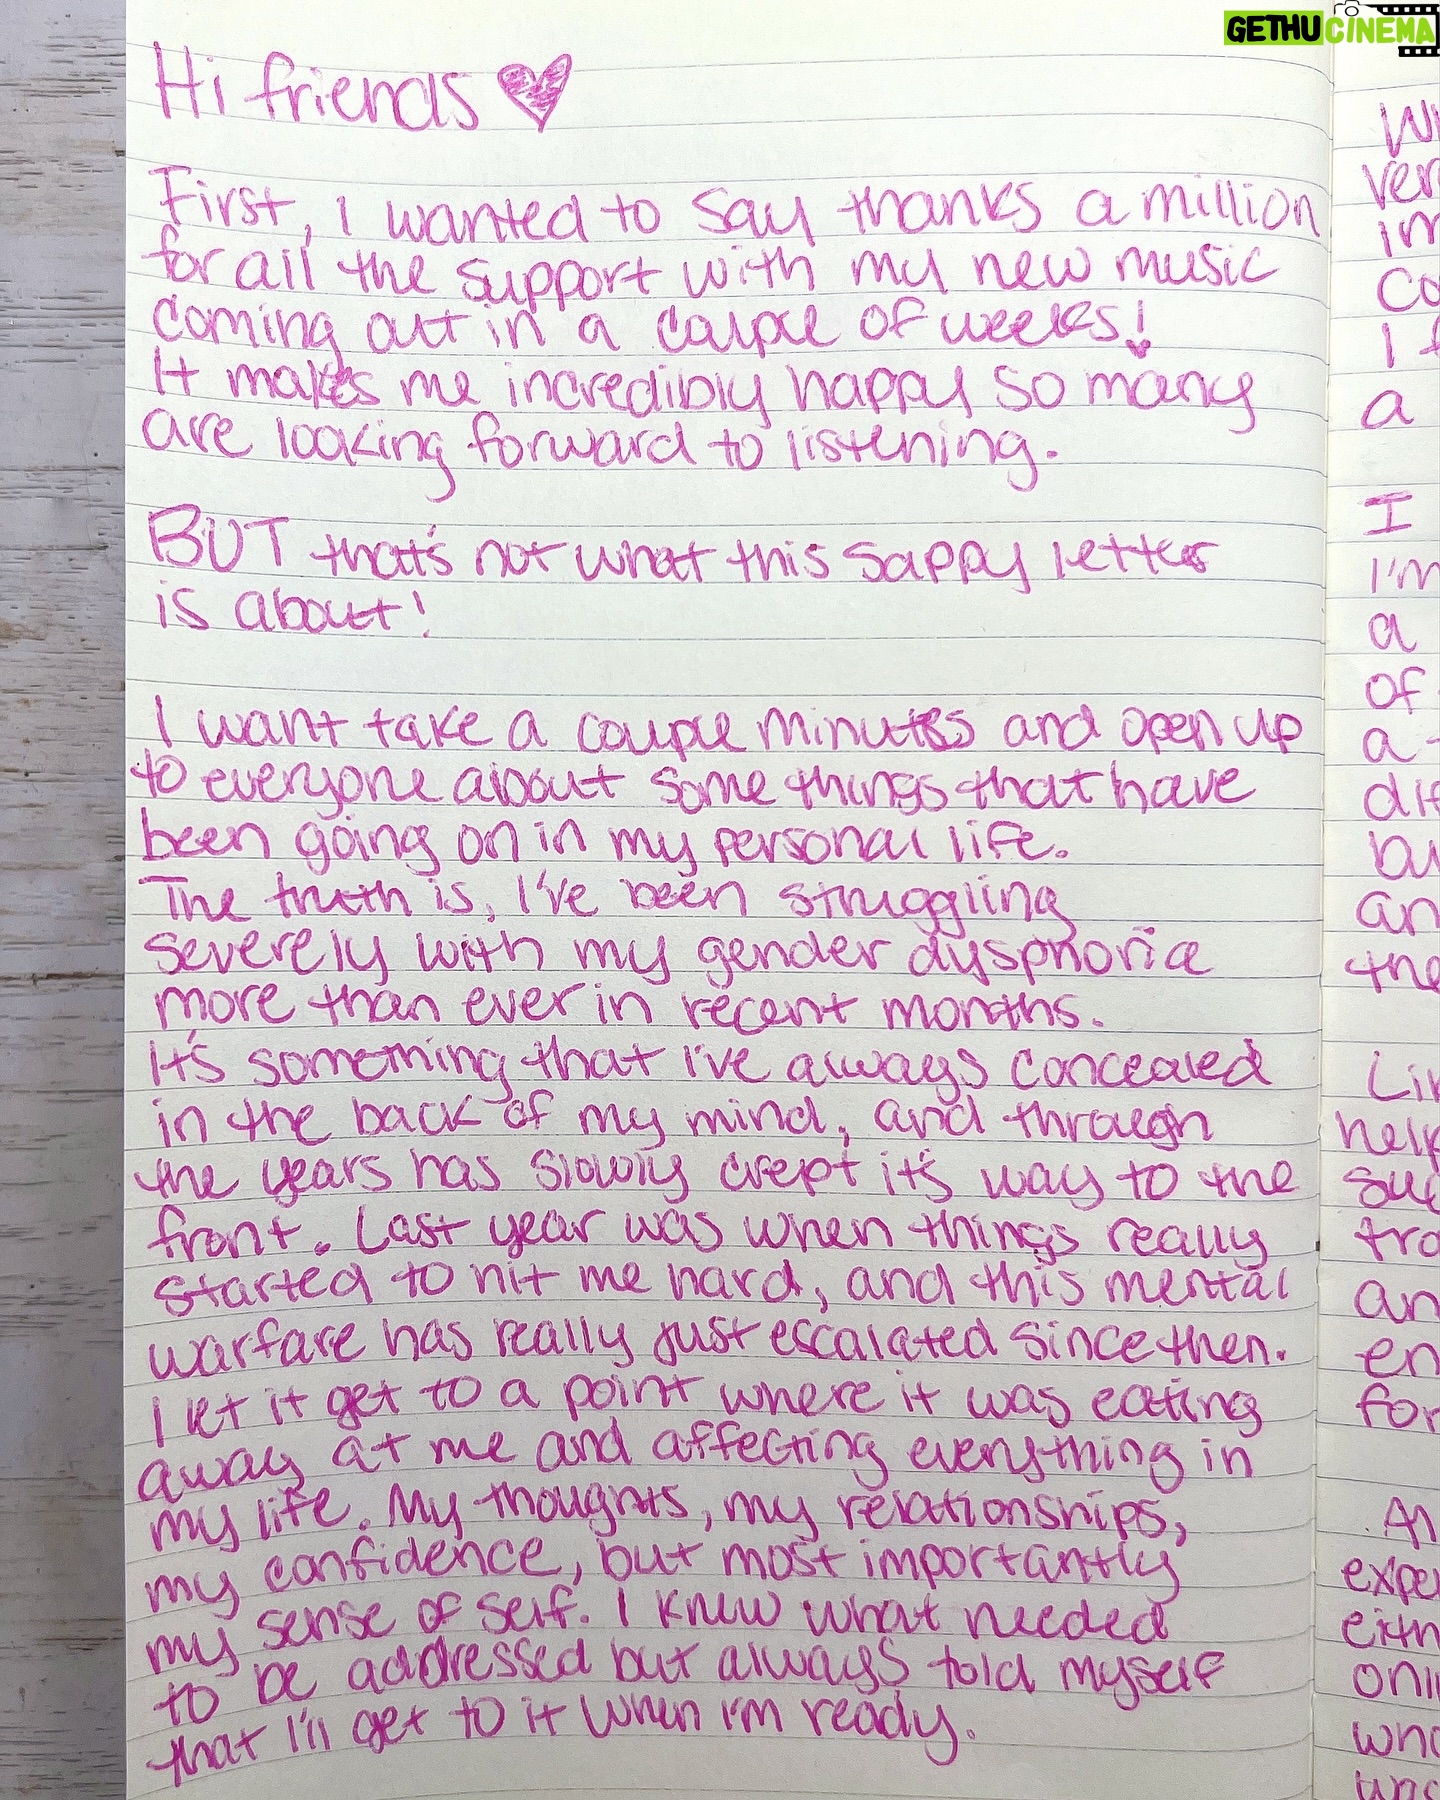 GETHUCINEMA
Hi friends
First, I wanted to say thanks a million
for all the support with my new music
coming out in a couple of weeks!
It makes me incredibly happy so many
are looking forward to listening.
BUT that's not what this sappy letter
is about!
I want take a couple minutes and open up
to everyone about some things that have
been going on in my personal life.
The truth is, I've been struggling
severely with my gender dysphoria
more than ever in recent months.
It's something that I've always concealed
in the back of my mind, and through
the years has slowly crept it's way to the
front. Last year was when things really
started to hit me hard, and this mental
warfare has really just escalated since then.
I let it get to a point where it was eating
away at me and affecting everything in
my life. My thoughts, my relationships,
my confidence, but most importantly
my sense of self. I knew what needed
to be addressed but always told myself
that I'll get to it when I'm ready.
I
I'm
a
of
a